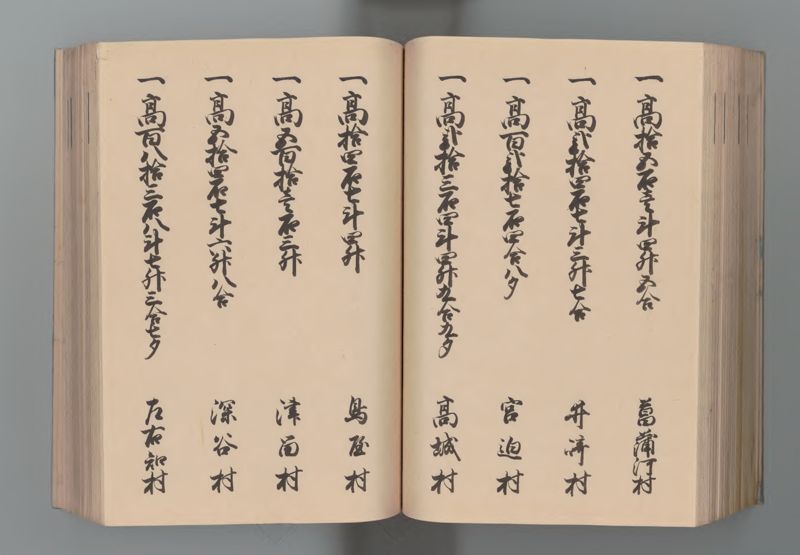 一高拾五石壱斗四升五合 菖蒲江村
一高弐拾四石七斗三升七合 井崎村
一高百弐拾七石四合八夕 宮迫村
一高弐拾三石四斗四升九合九夕 高城村
一高拾四石七斗四升 鳥屋村
一高五百拾壱石三升 津留村
一高五拾四石七斗六升八合 深谷村
一高百八拾三石八斗七升三合七夕 左右知村